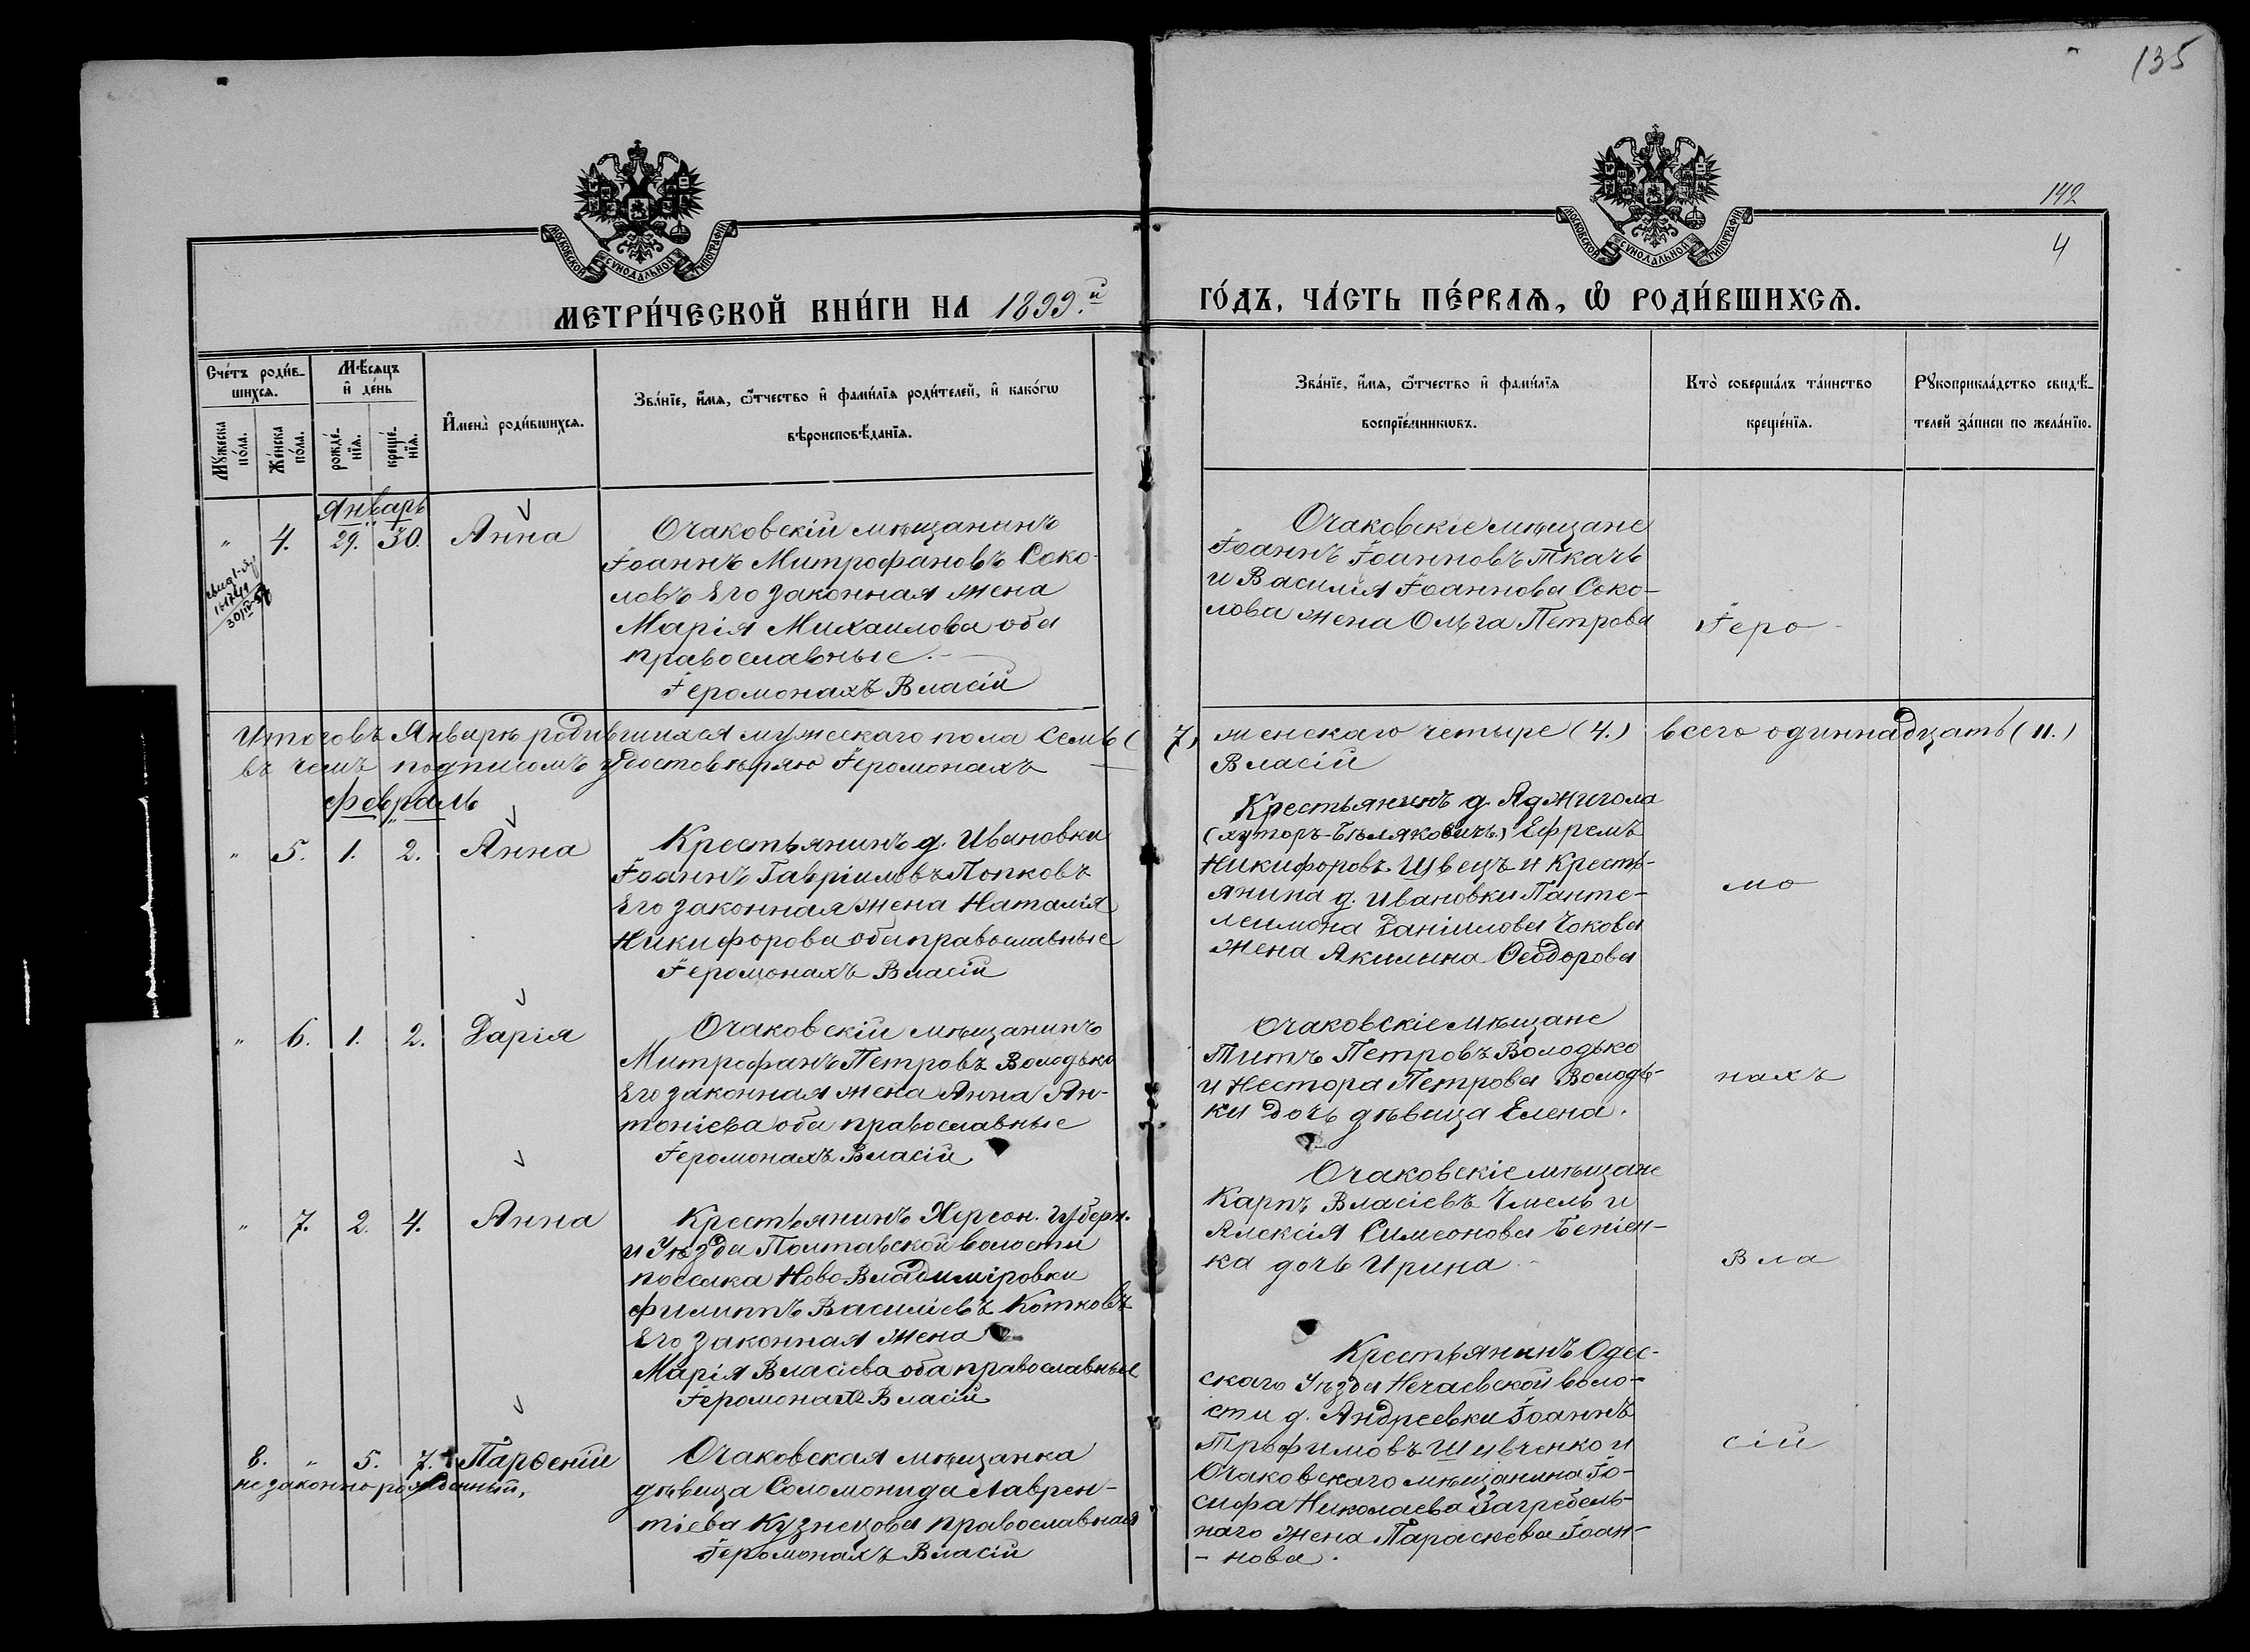 135
142
4
МОСКОВСКОЙ СѴНОДАЛЬНОЙ ТИПОГРАФІИ
МОСКОВСКОЙ СѴНОДАЛЬНОЙ ТИПОГРАФІИ
МЕТРИ́ЧЕСКОЙ КНИ́ГИ НА 1899.й
ГО́ДЪ, ЧА́СТЬ ПЕ́РВАѦ, Ѿ РОДИ́ВШИХСѦ.
Сче́тъ роди́в-
шихсѧ.
Мꙋ́жеска
по́ла.
Же́нска
по́ла.
Мѣ́сѧцъ
и҆ де́нь
рожде́-
нїѧ.
креще́-
нїѧ.
И҆мена̀ роди́вшихсѧ.
Зва́нїе, и҆́мѧ, ѻ҆́тчество и҆ фами́лїѧ роди́телей, и҆ како́гѡ
вѣроисповѣ́данїѧ.
Зва́нїе, и҆́мѧ, ѻ҆́тчество и҆ фами́лїѧ
воспрїе́мникѡвъ.
Кто̀ соверша́лъ та́инство
креще́нїѧ.
Рꙋкоприкла́дство свидѣ́-
телей за́писи по жела́нїю.
Январь
" 4. 29. 30. Анна
Очаковскій мѣщанинъ
Іоаннъ Митрофановъ Соко-
ловъ Его законная жена
Марія Михаилова оба
православные.
Іеромонахъ Власій
Очаковскіе мѣщане
Іоаннъ Іоанновъ Ткачъ
и Василія Іоаннова Соко-
лова жена Ольга Петрова
Іеро-
Итого въ Январѣ родившихся мужескаго пола Семь (7) женскаго четыре (4.) всего одиннадцать (11.)
въ чемъ подписомъ удостовѣряю Іеромонахъ Власій
Февраль
" 5. 1. 2. Анна
Крестьянинъ д. Ивановки
Іоаннъ Гавріиловъ Попковъ
Его законная жена Наталія
Никифорова оба православные
Іеромонахъ Власій
Крестьянинъ д. Аджигола
(хуторъ-Бѣляковичъ) Ефремъ
Никифоровъ Швецъ и Кресть-
янина д. Ивановки Панте-
леимона Даніилова Чокова
жена Акилина Ѳеодорова
мо
" 6. 1. 2. Дарія
Очаковскій мѣщанинъ
Митрофанъ Петровъ Володько
Его законная жена Анна Ан-
тоніева оба православные
Іеромонахъ Власій
Очаковскіе мѣщане
Титъ Петровъ Володько
и Нестора Петрова Володь-
ки дочь дѣвица Елена.
нахъ
" 7. 2. 4. Анна
Крестьянинъ Херсон. губерн.
и Уѣзда Полтавской волости
поселка Ново Владиміровки
Филиппъ Василіевъ Котковъ
Его законная жена
Марія Власіева оба православные
Іеромонахъ Власій
Очаковскіе мѣщане
Карпъ Власіевъ Чмель и
Алексія Симеонова Беніен-
ка дочь Ирина
Вла
8. " 5. 7. Парѳеній
незаконнорожденный,
Очаковская мѣщанка
дѣвица Соломонида Лаврен-
тіева Кузнецова православная
Іеромонахъ Власій
Крестьянинъ Одес-
скаго Уѣзда Нечаевской воло-
сти д. Андреевки Іоаннъ
Трофимовъ Шивченко и
Очаковскаго мѣщанина Іо-
сифа Николаева Загребель-
наго жена Параскева Іоан-
-нова.
сій